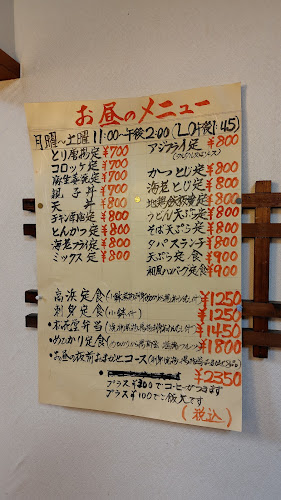 お昼のメニュー
月曜〜土曜 11:00〜午後2:00 (L.O午後1:45)
とり唐揚定 ¥700
コロッケ定 ¥700
麻生姜焼定 ¥700
親子丼 ¥700
天丼 ¥800
チキン南蛮定 ¥800
とんかつ定 ¥800
海老フライ定 ¥800
ミックス定 ¥800
アジフライ定 ¥800
かつとじ定 ¥800
海老とじ定 ¥800
地鶏 ¥800
うどん天ぷら定 ¥800
そば天ぷら定 ¥800
タパスランチ ¥800
天ぷら定食 ¥900
和風ハンバーグ定食 ¥900
高浜定食 ¥1250
刺身定食(小鉢付) ¥1250
弁当 ¥1450
・めひかり定食 ¥1800
・お昼の板前おまかせコース ¥2350
プラス¥300でコーヒーがつきます
プラス¥100でご飯大です
(税込)